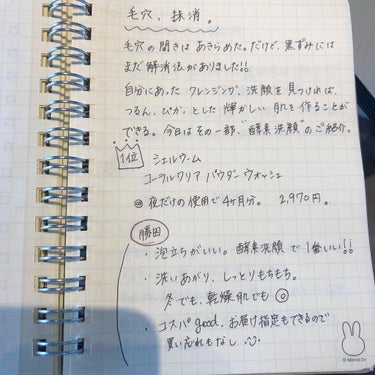 毛穴、抹消。
毛穴の開きはあきらめた。だけど、黒ずみには
まだ解消法がありました!!
自分にあった クレンジング、洗顔を見つければ、
つるん、ぴか、とした 輝かしい 肌を作ることが
できる。今日はその一部、"酵素洗顔"のご紹介。
1位 シェルクルール
コーラルクリア パウダーウォッシュ
夜だけの使用で4ヶ月分。 2,970円。
・泡立ちがいい。酵素洗顔で1番いい!!
・洗いあがり、しっとりもちもち。
冬でも、乾燥肌でも ◎
・コスパgood、お届け指定もできるので
買い忘れもなし
© Mercis bv